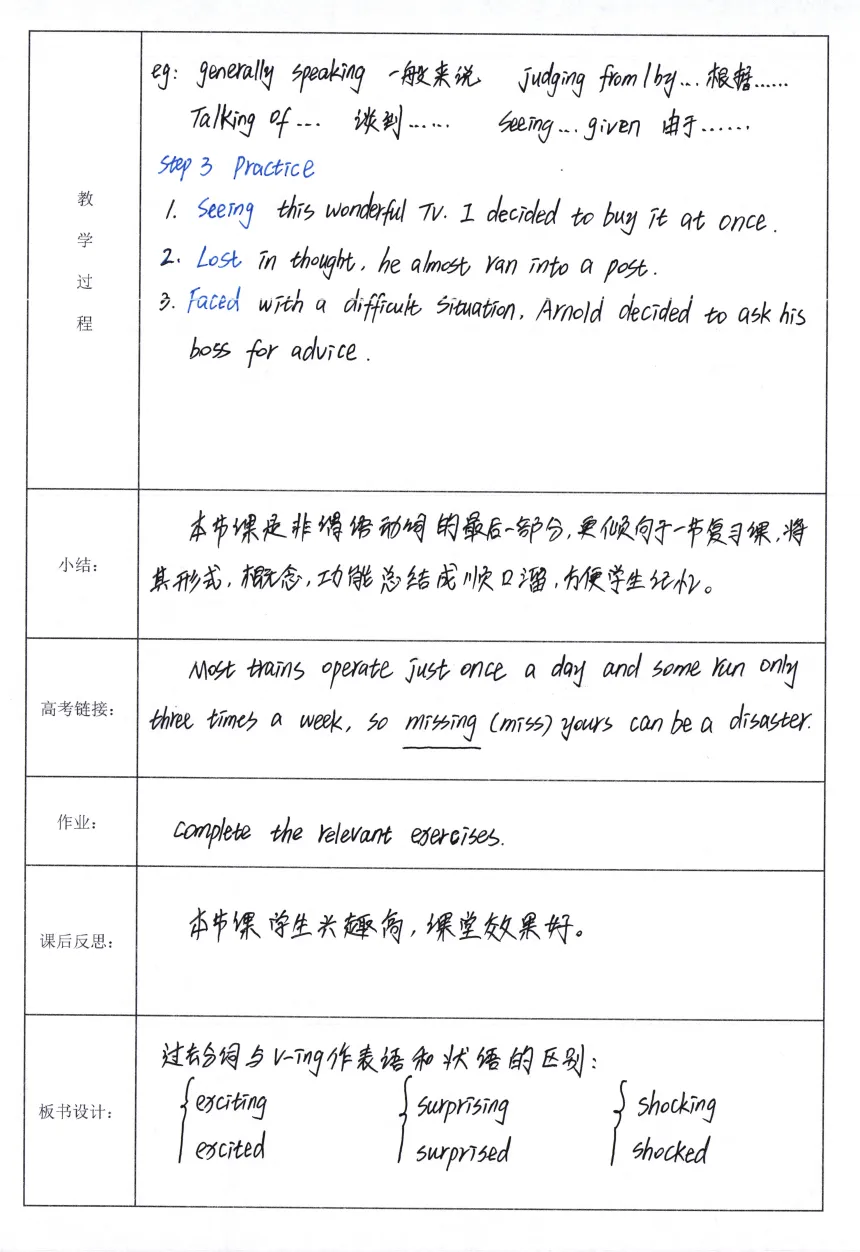 教学过程
eg: generally speaking 一般来说 judging from/by... 根据......
Talking of ... 谈到...... Seeing... given 由于......
Step 3 Practice
1. Seeing this wonderful TV. I decided to buy it at once.
2. Lost in thought, he almost ran into a post.
3. Faced with a difficult situation, Arnold decided to ask his
boss for advice.
小结:
本节课是非谓语动词的最后一部分,更倾向于一节复习课,将
其形式,概念,功能总结成顺口溜,方便学生记忆。
高考链接:
Most trains operate just once a day and some run only
three times a week, so missing (miss) yours can be a disaster.
作业:
complete the relevant exercises.
课后反思:
本节课学生兴趣高,课堂效果好。
板书设计:
过去分词与V-ing作表语和状语的区别:
{ exciting { surprising { shocking
excited surprised shocked